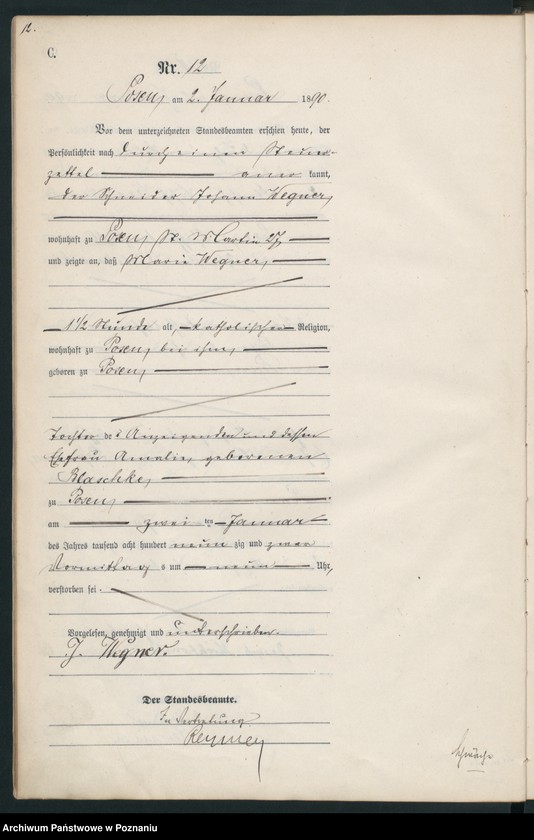 12.
C.
Nr. 12
Posen, am 2. Januar 1890.
Vor dem unterzeichneten Standesbeamten erschien heute, der
Persönlichkeit nach durch einen Steuer-
zettel aner kannt,
der Schneider Johann Wegner,
wohnhaft zu Posen, St. Martin 27
und zeigte an, daß Marie Wegner,
1 1/2 Stunde alt, katholischer Religion,
wohnhaft zu Posen, bei ihm,
geboren zu Posen,
Tochter des Anzeigenden und dessen
Ehefrau Amalie, geborenen
Blaschke,
zu Posen,
am zwei ten Januar
des Jahres tausend acht hundert neun zig und zwar
Vormittag s um neun Uhr,
verstorben sei.
Vorgelesen, genehmigt und unterschrieben.
J. Wegner.
Der Standesbeamte.
In Vertretung
Schwäche
Archiwum Państwowe w Poznaniu